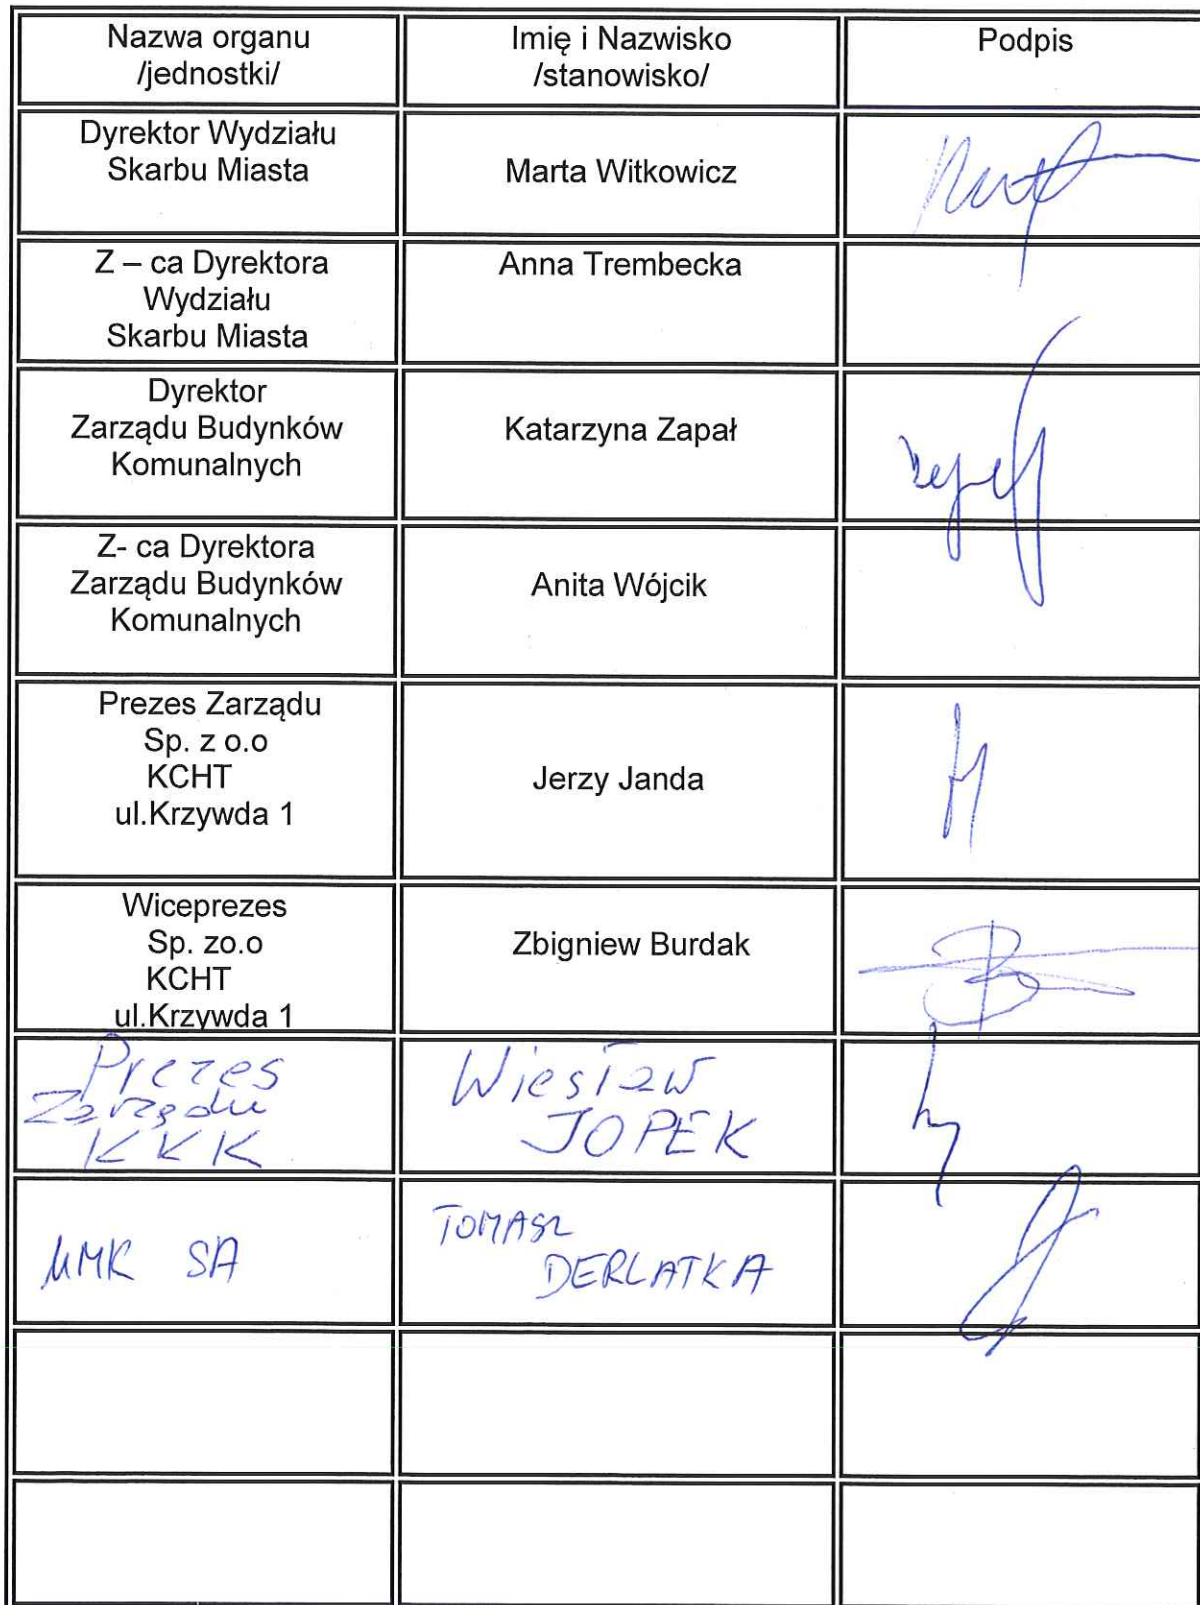 Nazwa organu
/jednostki/
Imię i Nazwisko
/stanowisko/
Podpis
Dyrektor Wydziału
Skarbu Miasta
Marta Witkowicz
Z – ca Dyrektora
Wydziału
Skarbu Miasta
Anna Trembecka
Dyrektor
Zarządu Budynków
Komunalnych
Katarzyna Zapał
Z- ca Dyrektora
Zarządu Budynków
Komunalnych
Anita Wójcik
Prezes Zarządu
Sp. z o.o
KCHT
ul.Krzywda 1
Jerzy Janda
Wiceprezes
Sp. zo.o
KCHT
ul.Krzywda 1
Zbigniew Burdak
Prezes
Zarządu
KKK
Wiesław
JOPEK
SA
TOMASZ
DERLATKA